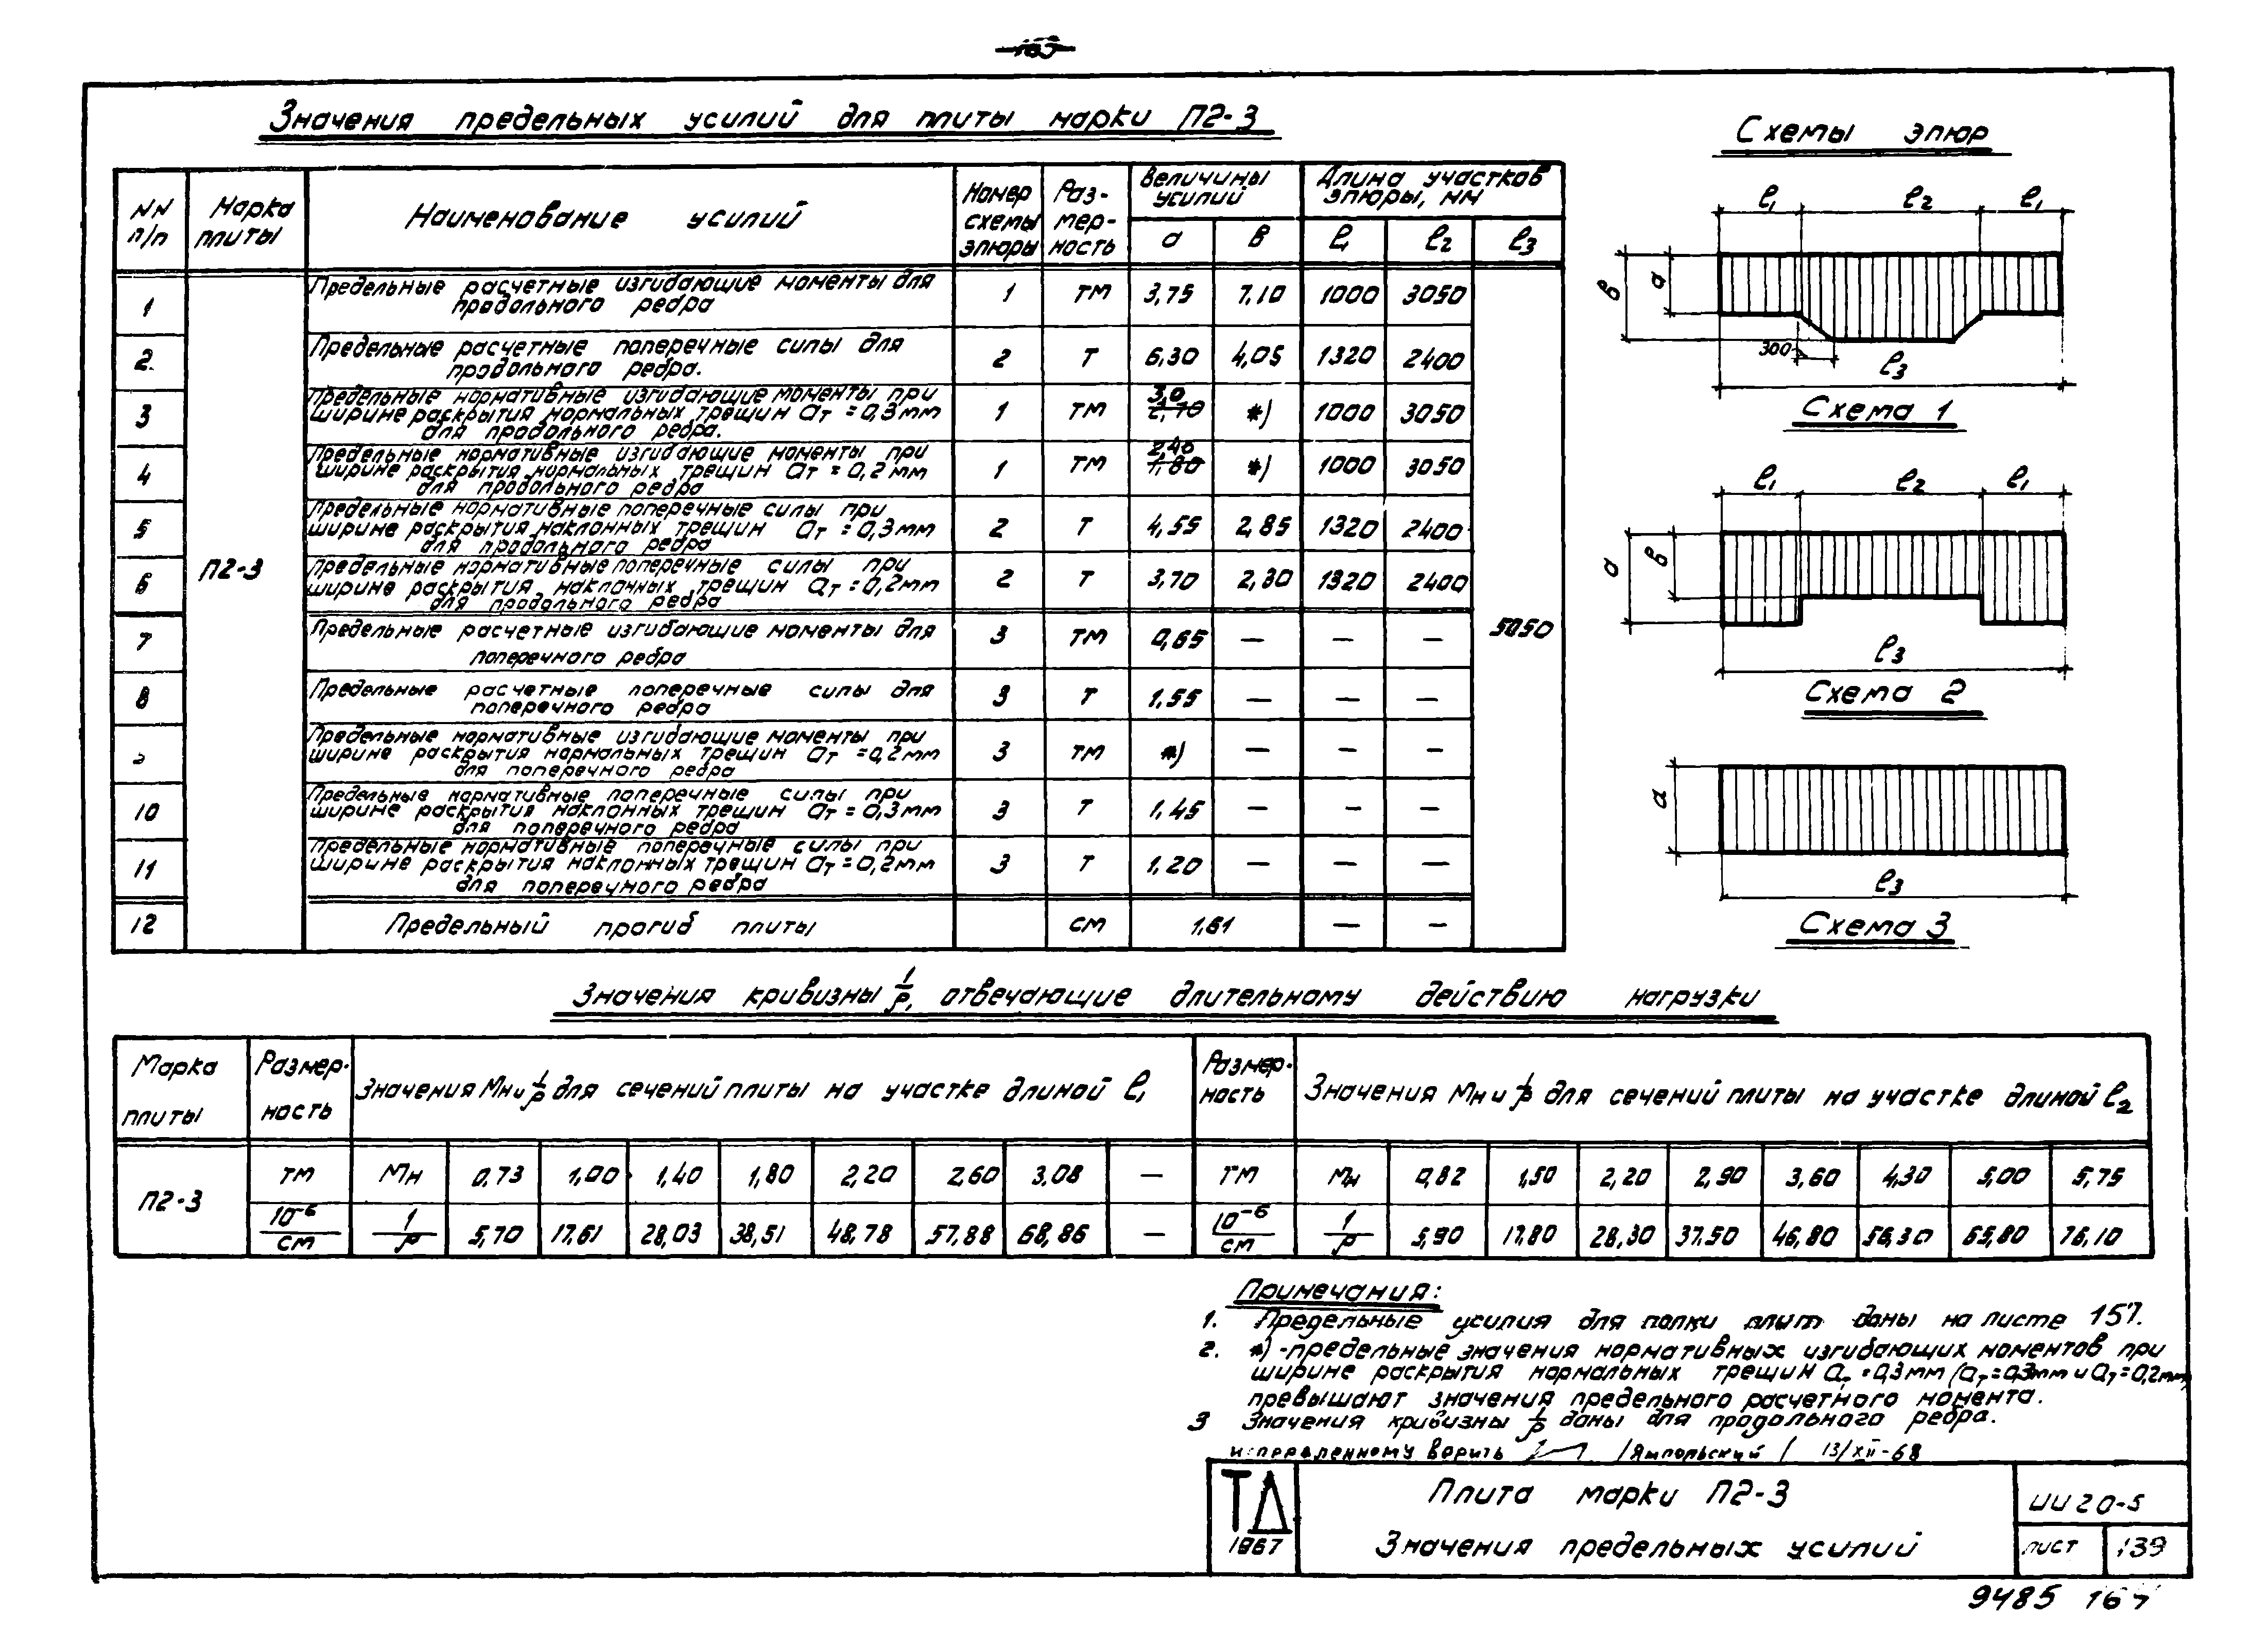 Значения предельных усилий для плиты марки П2-3
Схемы эпюр
NN п/п | Марка плиты | Наименование усилий | Номер схемы эпюры | Размерность | Величины усилий | Длина участков эпюры, мм
а | в | ℓ1 | ℓ2 | ℓ3
1 | Предельные расчетные изгибающие моменты для продольного ребра | 1 | тм | 3,75 | 7,10 | 1000 | 3050
2. | Предельные расчетные поперечные силы для продольного ребра. | 2 | т | 6,30 | 4,05 | 1320 | 2400
3 | Предельные нормативные изгибающие моменты при ширине раскрытия нормальных трещин aт = 0,3мм для продольного ребра. | 1 | тм | 3,0 | *) | 1000 | 3050
4 | Предельные нормативные изгибающие моменты при ширине раскрытия нормальных трещин aт = 0,2мм для продольного ребра | 1 | тм | 2,40 1,80 | *) | 1000 | 3050
5 | Предельные нормативные поперечные силы при ширине раскрытия наклонных трещин aт = 0,3мм для продольного ребра | 2 | т | 4,55 | 2,85 | 1320 | 2400
6 | Предельные нормативные поперечные силы при ширине раскрытия наклонных трещин aт = 0,2мм для продольного ребра | 2 | т | 3,70 | 2,30 | 1320 | 2400
П2-3
5050
7 | Предельные расчетные изгибающие моменты для поперечного ребра | 3 | тм | 0,65 | — | — | —
8 | Предельные расчетные поперечные силы для поперечного ребра | 3 | т | 1,55 | — | — | —
Предельные нормативные изгибающие моменты при ширине раскрытия нормальных трещин aт = 0,2мм для поперечного ребра | 3 | тм | *) | — | — | —
10 | Предельные нормативные поперечные силы при ширине раскрытия наклонных трещин aт = 0,3мм для поперечного ребра | 3 | т | 1,45 | — | — | —
11 | Предельные нормативные поперечные силы при ширине раскрытия наклонных трещин aт = 0,2мм для поперечного ребра | 3 | т | 1,20 | — | — | —
12 | Предельный прогиб плиты | см | 1,61 | — | —
ℓ1 ℓ2 ℓ1
в а
300
ℓ3
Схема 1
ℓ1 ℓ2 ℓ1
а в
ℓ3
Схема 2
а
ℓ3
Схема 3
Значения кривизны 1/ρ, отвечающие длительному действию нагрузки
Марка плиты | Размерность | Значения Мн и 1/ρ для сечений плиты на участке длиной ℓ1 | Размерность | Значения Мн и 1/ρ для сечений плиты на участке длиной ℓ2
П2-3 | тм | Мн | 0,73 | 1,00 | 1,40 | 1,80 | 2,20 | 2,60 | 3,08 | — | тм | Мн | 0,82 | 1,50 | 2,20 | 2,90 | 3,60 | 4,30 | 5,00 | 5,75
10⁻⁶/см | 1/ρ | 5,70 | 17,61 | 28,03 | 38,51 | 48,78 | 57,88 | 68,86 | — | 10⁻⁶/см | 1/ρ | 5,90 | 17,80 | 28,30 | 37,50 | 46,80 | 56,30 | 65,80 | 76,10
Примечания:
1. Предельные усилия для полки плит даны на листе 157.
2. *) -предельные значения нормативных изгибающих моментов при
ширине раскрытия нормальных трещин aт = 0,3мм (aт = 0,3мм и aт = 0,2мм)
превышают значения предельного расчетного момента.
3 Значения кривизны 1/ρ даны для продольного ребра.
исправленному верить /Ямпольский/ 13/XII-68
ТД
1967
Плита марки П2-3
Значения предельных усилий
ИИ 20-5
лист 139
9485